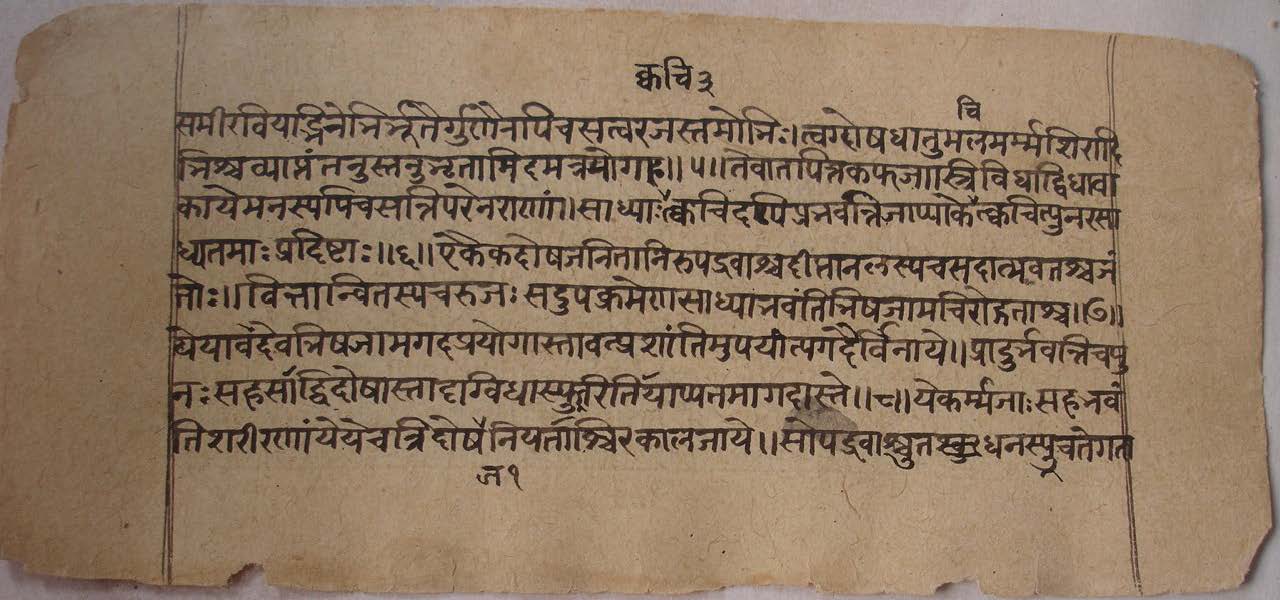 क्वचि३
चि
समीरवियद्भिनेत्रिर्भूतैर्गुणैनपिचसत्वरजस्तमोभिः। त्वग्दोषधातुमलमर्म्मशिरादि
भिश्चव्याप्तंतनुस्तनुभृतामिदमत्रयोगाः॥५॥तेवातपित्तकफजास्त्रिविधाद्विधावा
कायेमनस्यपिचसन्निपरेनराणां॥साध्याःक्वचिदपिप्रभवन्तिजाप्याकेक्वचित्पुनरसा
ध्यतमाःप्रदिष्टाः॥६॥एकैकदोषजनितानिरुपद्रवाश्चदीप्तानलस्यचसदात्मवतश्चजं
तोः॥वित्तान्वितस्यचरुजःसदुपक्रमेणसाध्याभवंतिभिषजामचिरोद्गताश्च॥७॥
येयावदेवभिषजामगदप्रयोगास्तावत्प्रशांतिमुपयांत्यगदैर्विनाये॥प्रादुर्भवन्तिचपु
नःसहसाद्विदोषास्तादृग्विधास्युरितियाप्यतमागदास्ते॥८॥येकर्म्मजाःसहभवं
तिशरीरणांयेयेचत्रिदोषनियताश्चिरकालजाये॥सोपद्रवाश्च्युतधनस्यचतेगत
ज१